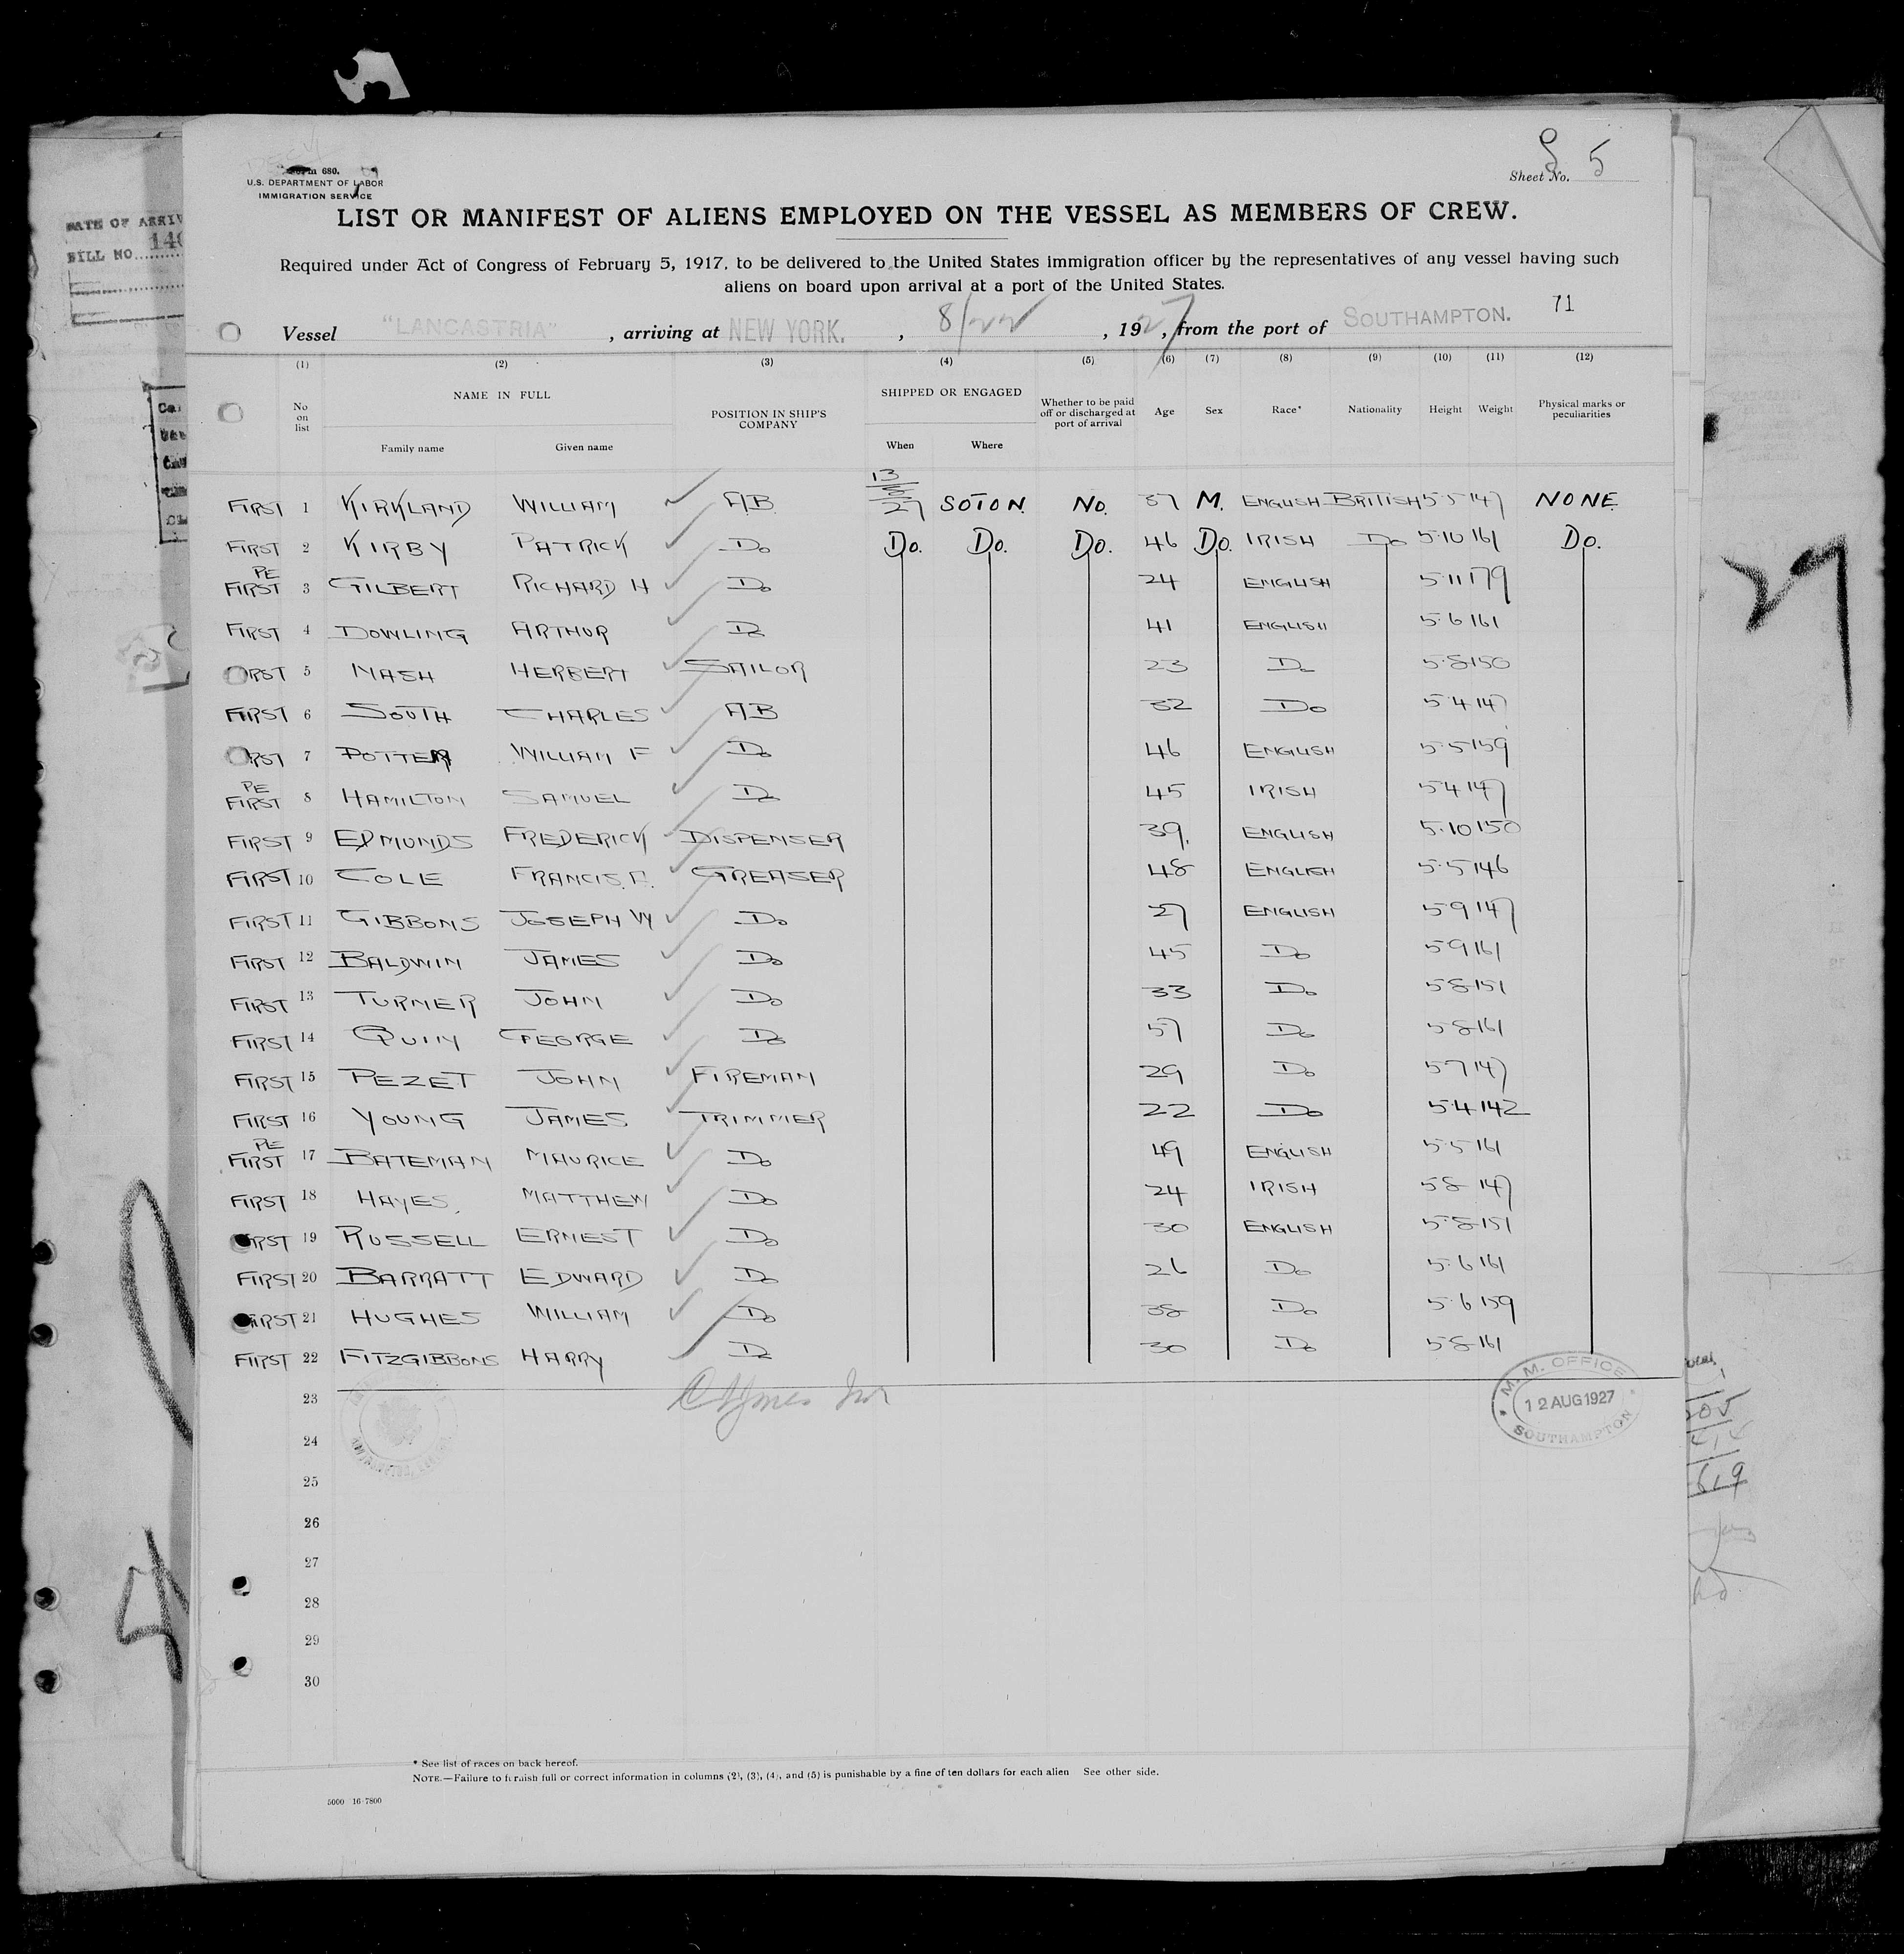 Sheet No. 5
Form 680.
U.S. DEPARTMENT OF LABOR
IMMIGRATION SERVICE
LIST OR MANIFEST OF ALIENS EMPLOYED ON THE VESSEL AS MEMBERS OF CREW.
Required under Act of Congress of February 5, 1917, to be delivered to the United States immigration officer by the representatives of any vessel having such
aliens on board upon arrival at a port of the United States.
71
Vessel "LANCASTRIA" , arriving at NEW YORK. , 8/22 , 1927, from the port of SOUTHAMPTON.
(1) (2) (3) (4) (5) (6) (7) (8) (9) (10) (11) (12)
No on list NAME IN FULL Family name Given name POSITION IN SHIP'S COMPANY SHIPPED OR ENGAGED When Where Whether to be paid off or discharged at port of arrival Age Sex Race* Nationality Height Weight Physical marks or peculiarities
FIRST 1 KIRKLAND WILLIAM AB 13/8/27 SOTON. No. 37 M. ENGLISH BRITISH 5·5 147 NONE.
FIRST 2 KIRBY PATRICK Do Do. Do. Do. 46 Do. IRISH Do 5·10 161 Do.
PE FIRST 3 GILBERT RICHARD H Do 24 ENGLISH 5·11 179
FIRST 4 DOWLING ARTHUR Do 41 ENGLISH 5·6 161
FIRST 5 NASH HERBERT SAILOR 23 Do 5·8 150
FIRST 6 SOUTH CHARLES AB 32 Do 5·4 147
FIRST 7 POTTER WILLIAM F Do 46 ENGLISH 5·5 159
PE FIRST 8 HAMILTON SAMUEL Do 45 IRISH 5·4 147
FIRST 9 EDMUNDS FREDERICK DISPENSER 39. ENGLISH 5·10 150
FIRST 10 COLE FRANCIS. A. GREASER 48 ENGLISH 5·5 146
FIRST 11 GIBBONS JOSEPH W Do 27 ENGLISH 5 9 147
FIRST 12 BALDWIN JAMES Do 45 Do 5 9 161
FIRST 13 TURNER JOHN Do 33 Do 5 8 151
FIRST 14 QUIN GEORGE Do 57 Do 5 8 161
FIRST 15 PEZET JOHN FIREMAN 29 Do 5 7 147
FIRST 16 YOUNG JAMES TRIMMER 22 Do 5·4 142
PE FIRST 17 BATEMAN MAURICE Do 49 ENGLISH 5·5 161
FIRST 18 HAYES. MATTHEW Do 24 IRISH 5 8 147
FIRST 19 RUSSELL ERNEST Do 30 ENGLISH 5·8 151
FIRST 20 BARRATT EDWARD Do 26 Do 5·6 161
FIRST 21 HUGHES WILLIAM Do 38 Do 5·6 159
FIRST 22 FITZGIBBONS HARRY Do 30 Do 5·8 161
23
M.M. OFFICE
12 AUG 1927
SOUTHAMPTON
24
25
26
27
28
29
30
* See list of races on back hereof.
NOTE.—Failure to furnish full or correct information in columns (2), (3), (4), and (5) is punishable by a fine of ten dollars for each alien See other side.
5000 16-7800
DATE OF ARRIV
BILL NO. 140
27
619